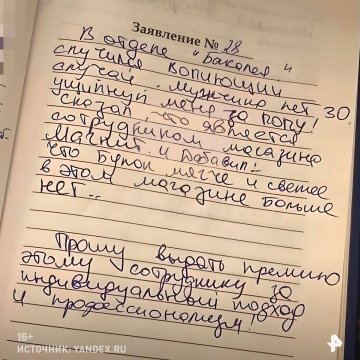 Заявление № 28
В отделе "Бакалея"
случился вопиющий
случай. Мужчина лет 30,
ущипнул меня за попу!
сказал, что является
сотрудником магазина
Магнит и добавил:-
что булок мягче и свежее
в этом магазине больше
нет...
Прошу выдать премию
этому сотруднику за
индивидуальный подход
и профессионализм!
16+
ИСТОЧНИК: YANDEX.RU